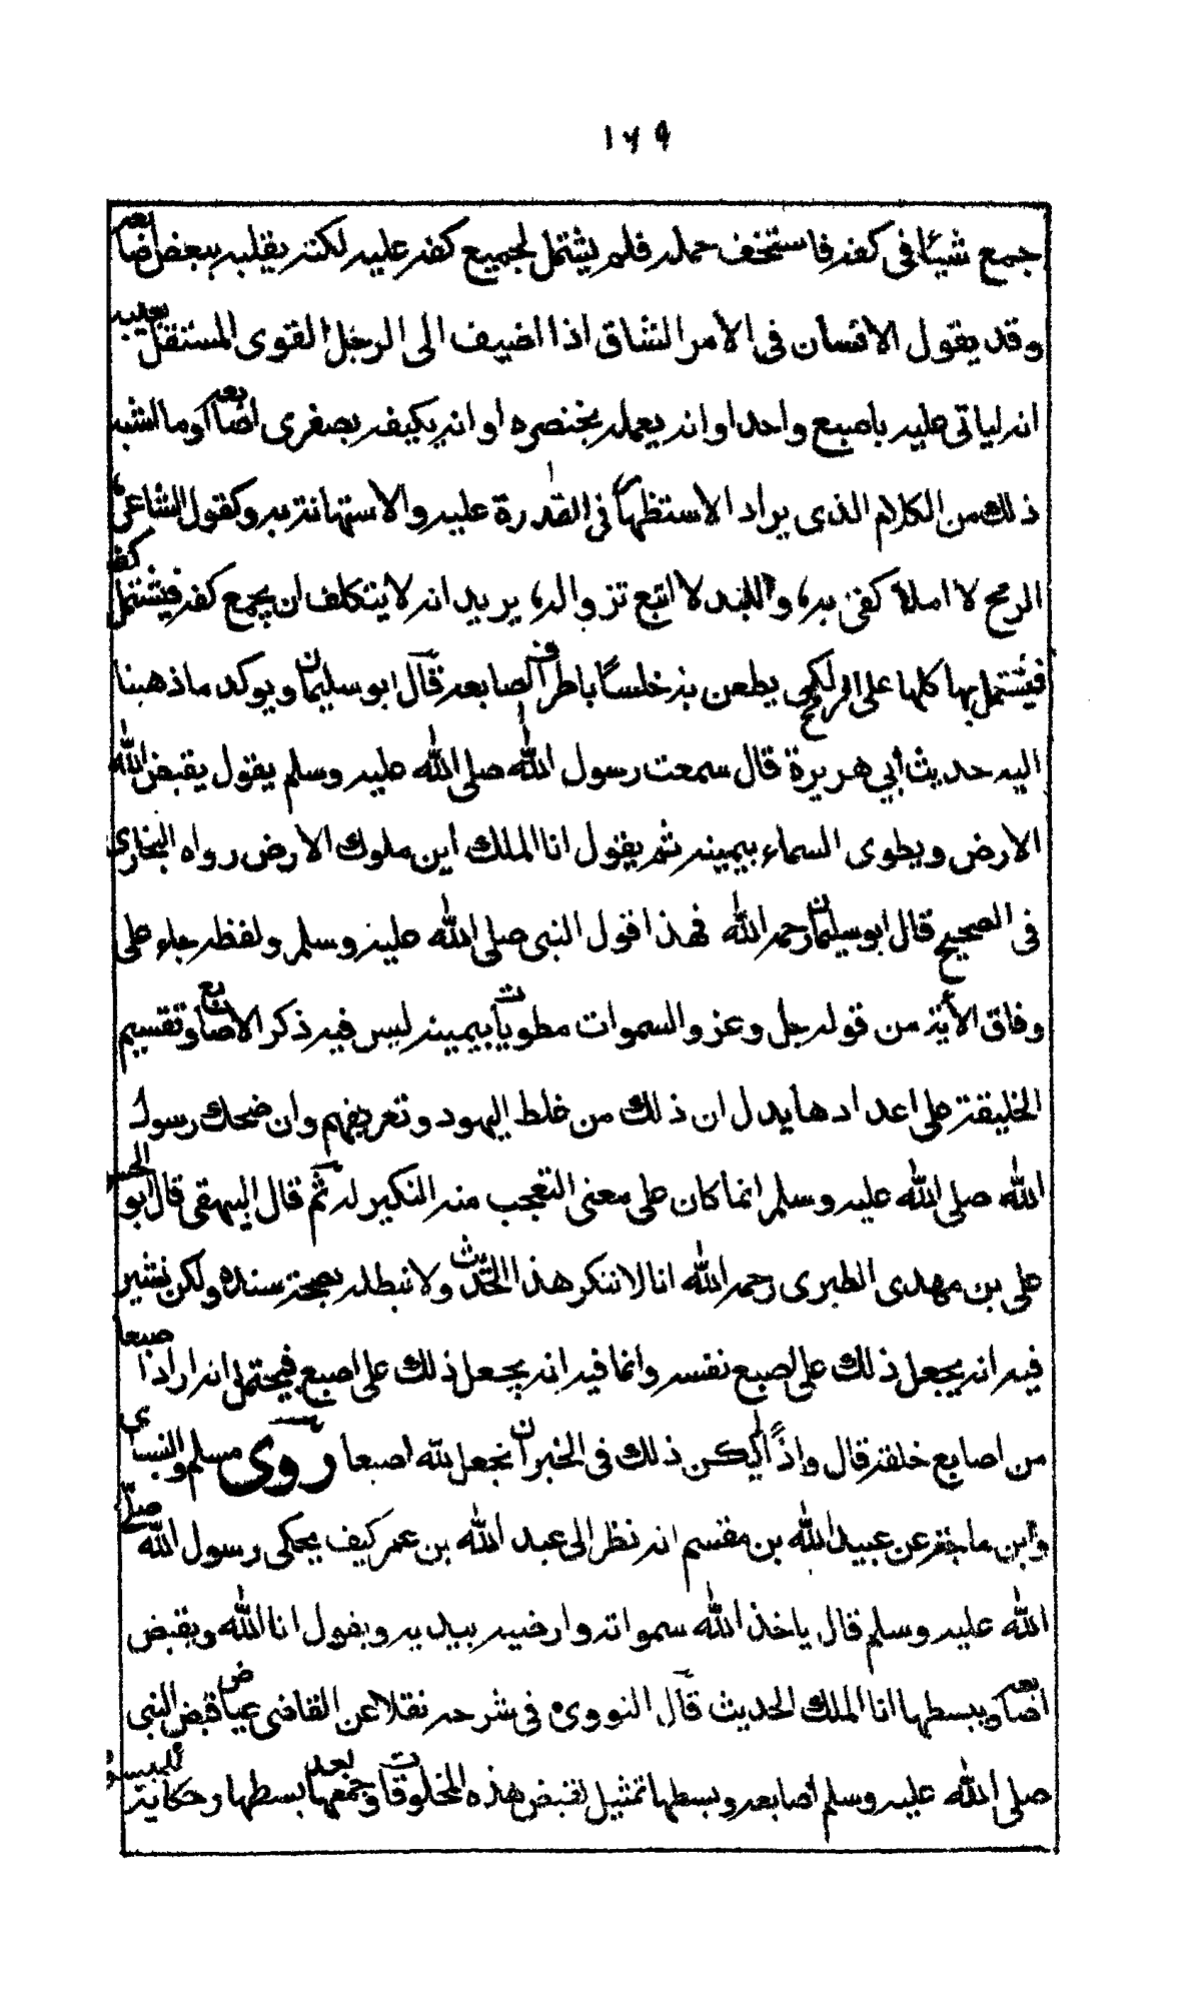 ١٦٩
جمع شيئا فى كفه فاستخف حمله فلم يشتمل لجميع كفه عليه لكنه يقلبه ببعض اصابعه
وقد يقول الانسان فى الامر الشاق اذا اضيف الى الرجل القوى المستقل بعبئه
انه لياتى عليه باصبع واحد او انه يعمله بخنصره او انه يكيفه بصغرى اصابعه او ما اشبه
ذلك من الكلام الذى يراد الاستظهار فى القدرة عليه والاستهانة به وكقول الشاعر
الرمح لا املأ كفى به، واللبد لا اتبع تزواله، يريد انه لا يتكلف ان يجمع كفه فيشتمل كفه
فيشتمل بها كلها على الرمح لكن يطعن به خلسا باطراف اصابعه قال ابو سليمان ويوكد ما ذهبنا
اليه حديث أبي هريرة قال سمعت رسول الله صلى الله عليه وسلم يقول يقبض الله
الارض ويطوى السماء بيمينه ثم يقول انا الملك اين ملوك الارض رواه البخارى
فى الصحيح قال ابو سليمان رحمه الله فهذا قول النبى صلى الله عليه وسلم ولفظه جاء على
وفاق الأية من قوله جل وعز والسموات مطويات بيمينه ليس فيه ذكر الاصابع وتقسيم
الخليقة على اعدادها يدل ان ذلك من غلط اليهود وتعريفهم وان ضحك رسول
الله صلى الله عليه وسلم انما كان على معنى التعجب منه النكير له ثم قال البيهقى قال ابو الحسن
على بن مهدى الطبرى رحمه الله انا لا ننكر هذا الحديث ولا نبطله بصحة سنده ولكن نشير
فيه انه يجعل ذلك على اصبع نفسه وانما فيه انه يجعل ذلك على اصبع فيحتمل انه اراد اصبعا
من اصابع خلقه قال واذا لم يكن ذلك فى الخبر ان نجعل لله اصبعا روى مسلم والنسائى
وابن ماجة عن عبيد الله بن مقسم انه نظر الى عبد الله بن عمر كيف يحكى رسول الله صلى
الله عليه وسلم قال ياخذ الله سمواته وارضيه بيديه ويقول انا الله ويقبض
اصابعه ويبسطها انا الملك الحديث قال النووى فى شرحه نقلا عن القاضى عياض قبض النبى
صلى الله عليه وسلم أصابعه وبسطها تمثيل لقبض هذه المخلوقات وجمعها بعد بسطها وحكاية للمبسوط